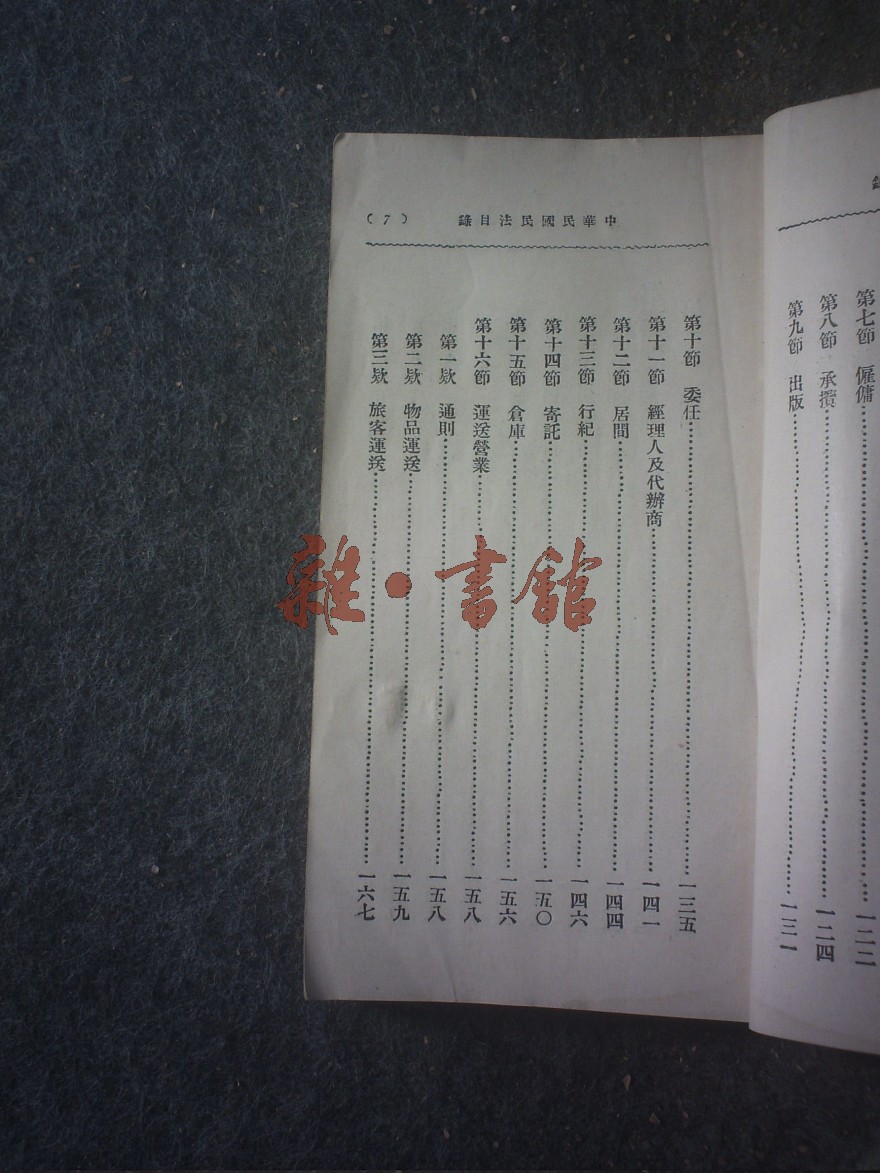 第七節　僱傭………一二二
第八節　承攬………一二四
第九節　出版………一三一
中華民國民法目錄　（7）
第十節　委任………一三五
第十一節　經理人及代辦商………一四一
第十二節　居間………一四四
第十三節　行紀………一四六
第十四節　寄託………一五〇
第十五節　倉庫………一五六
第十六節　運送營業………一五八
第一欵　通則………一五八
第二欵　物品運送………一五九
第三欵　旅客運送………一六七
雜·書館